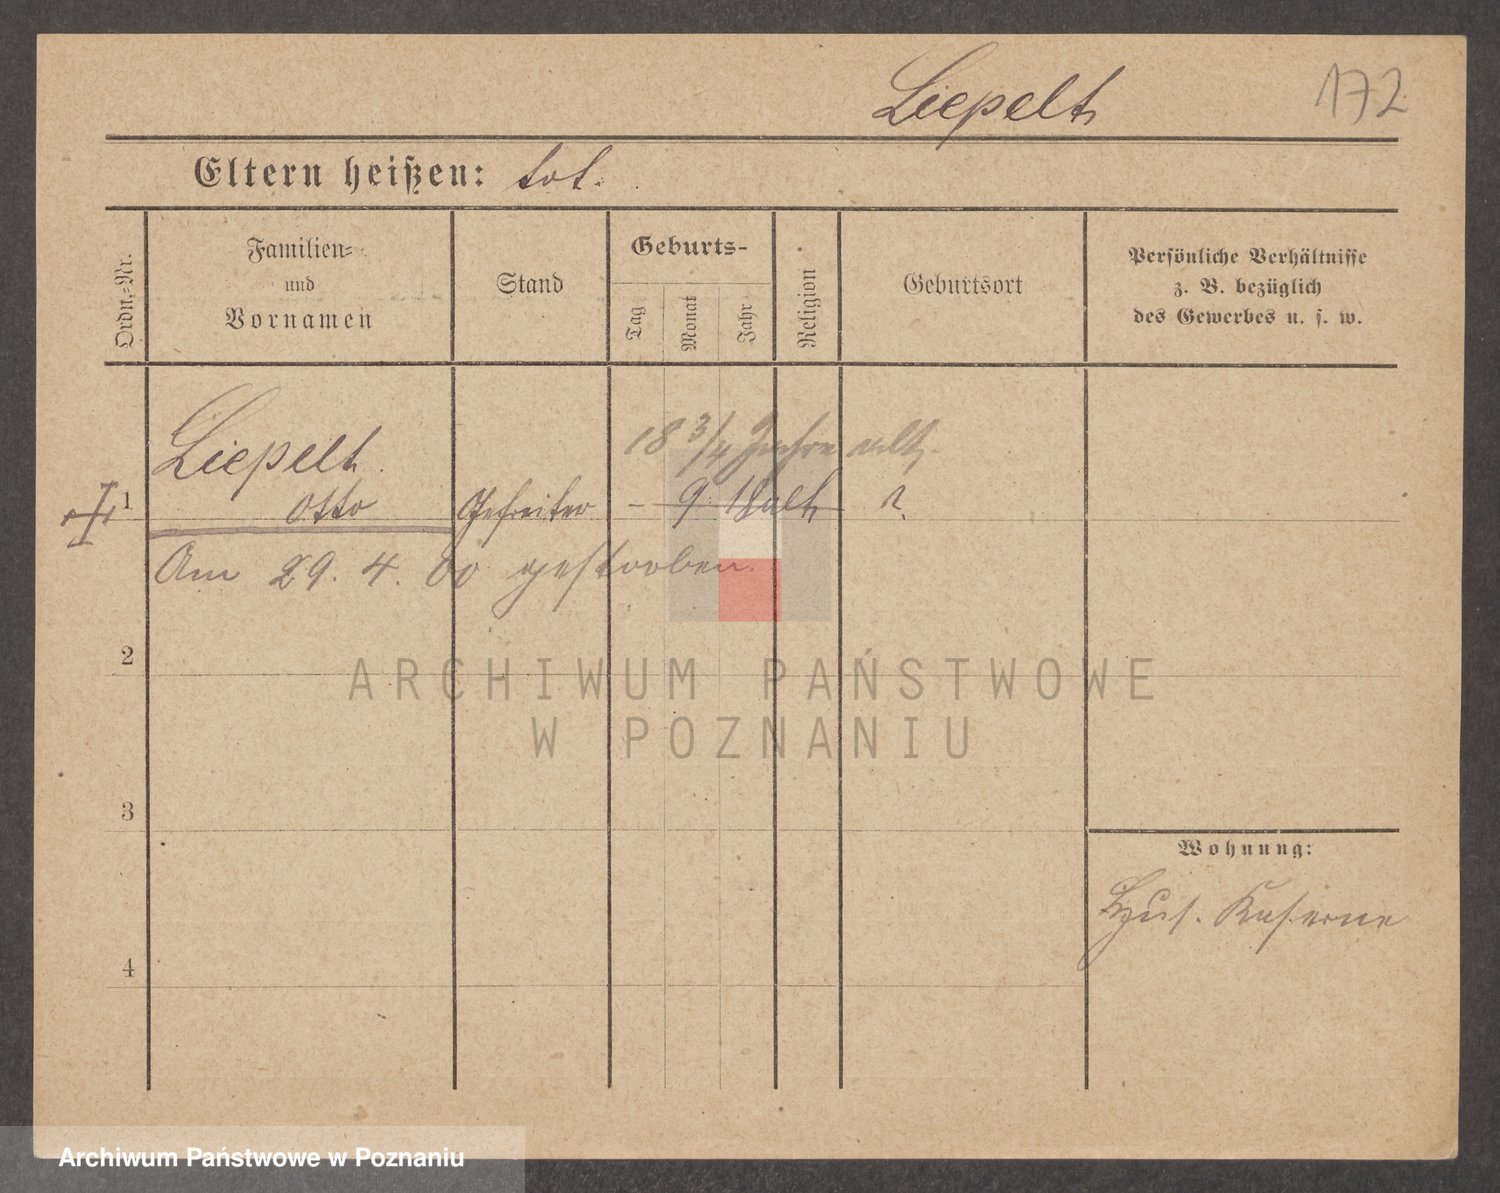 Liepelt
172
Eltern heißen: tot.
Ordn.-Nr.
Familien-
und
Vornamen
Stand
Geburts-
Tag
Monat
Jahr
Religion
Geburtsort
Persönliche Verhältnisse
z. B. bezüglich
des Gewerbes u. s. w.
Liepelt
18 3/4 Jahre alt.
1
Otto
Gefreiter
- 9 18 alt
?
Am 29. 4. 80 gestorben.
2
3
4
Wohnung:
Hus. Kaserne
ARCHIWUM PAŃSTWOWE
W POZNANIU
Archiwum Państwowe w Poznaniu